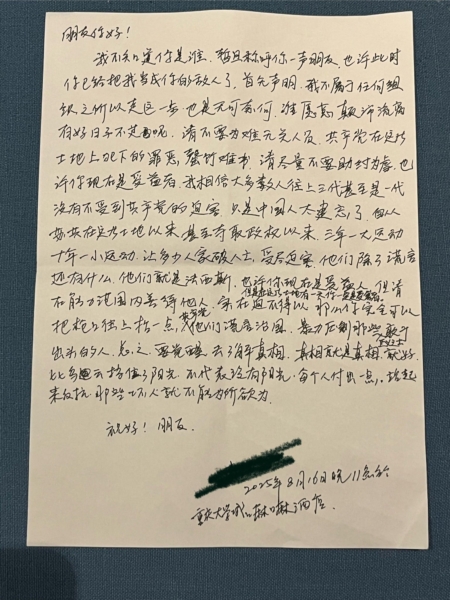 朋友你好！
我不知道你是谁，暂且称呼你一声朋友，也许此时
你已经把我当成你的敌人了，首先声明，我不属于任何组
织之所以走这一步也是无可奈何，谁愿意颠沛流离
有好日子不过呢，请不要为难无关人员，共产党在这片
土地上犯下的罪恶，罄竹难书，请尽量不要助纣为虐，也
许你现在是受益者，我相信大多数人往上三代甚至是一代
没有不受到共产党的迫害，只是中国人太健忘了，自从
它在这片土地以来，甚至夺取政权以来，三年一大运动
十年一小运动，让多少人家破人亡，受尽迫害，他们除了谎言
还有什么，他们就是法西斯，也许你现在是受益人，但请
在能力范围内善待他人，实在迫不得以，那你你完全可以
把枪口往上抬一点，共产党他们谎言治国，暴力压制那些敢于
出来的人，总之，要觉醒去了解真相，真相就是真相，就好
比乌云挡住了阳光，不代表没有阳光，每个人付出一点，站起
来反抗，那些人就不能为所欲为。
祝好！朋友。
2025年8月16日晚11点於
重庆大学城 酒店．